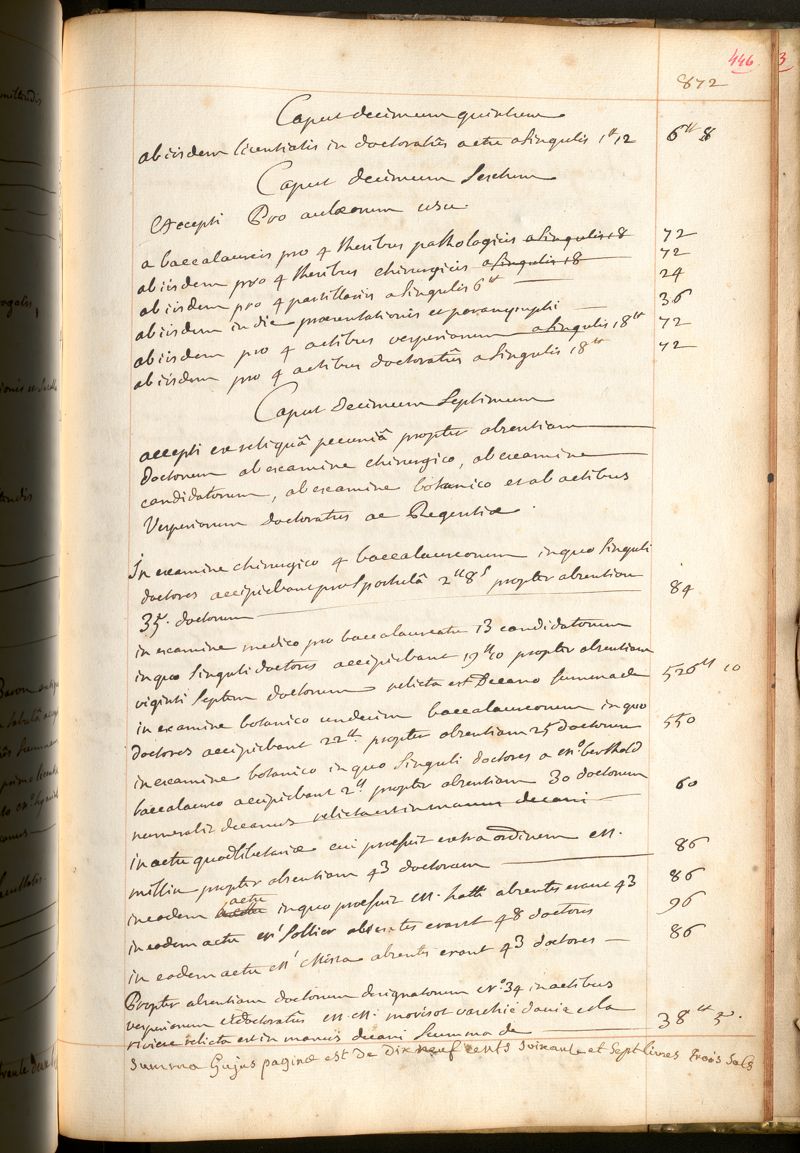 446 3
872
Caput decimum quintum
ab iisdem licentiatis in doctoratûs actu a singulis 1tt 12 6tt 8
Caput decimum Sextum
Accepti Pro aulæorum usu.
a baccalaureis pro 4 thesibus pathologicis a singulis 18 72
ab iisdem pro 4 thesibus chirurgicis a singulis 18 72
ab iisdem pro 4 pastillariis a singulis 6tt 24
ab iisdem in die præsentationis et paranymphi 36
ab iisdem pro 4 actibus vesperiarum a singulis 18tt 72
ab iisdem pro 4 actibus doctoratûs a singulis 18tt 72
Caput Decimum Septimum
accepti ex reliquâ pecuniâ propter absentiam
doctorum ab examine chirurgico, ab examine
candidatorum, ab examine botanico et ab actibus
Vesperiarum Doctoratus ac Regentiæ.
In examine chirurgico 4 baccalaureorum in quo singuli
doctores accipiebant pro sportulâ 2tt 8s propter absentiam
35. doctorum 84
in examine medico pro baccalaureatu 13 candidatorum
in quo singuli doctores accipiebant 19tt 10 propter absentiam
viginti septem doctorum relicta est Decano summa de 526tt 10
in examine botanico undecim baccalaureorum in quo
doctores accipiebant 22tt propter absentiam 25 doctorum 550
in examine botanico in quo singuli doctores a Mo. berthold
baccalaureo accipiebant 2tt propter absentiam 30 doctorum
numeratis decanus relicta est in manus decani 60
in actu quodlibetariæ cui præfuit extra ordinem M.
millin propter absentiam 43 doctorum 86
in eodem actu in quo præfuit M. hatti absentes erant 43 86
in eodem actu Mr Sollier absentes erant 48 doctores 96
in eodem actu Mr Missa absentes erant 43 doctores 86
Propter absentiam doctorum designatorum No. 34 in actibus
vesperiarum et doctoratûs M. M. morisot varchie davie et la
riviere relicta est in manus decani Summa de 38tt 3.
Summa hujus paginæ est de dix neuf cents soixante et Sept livres trois sols